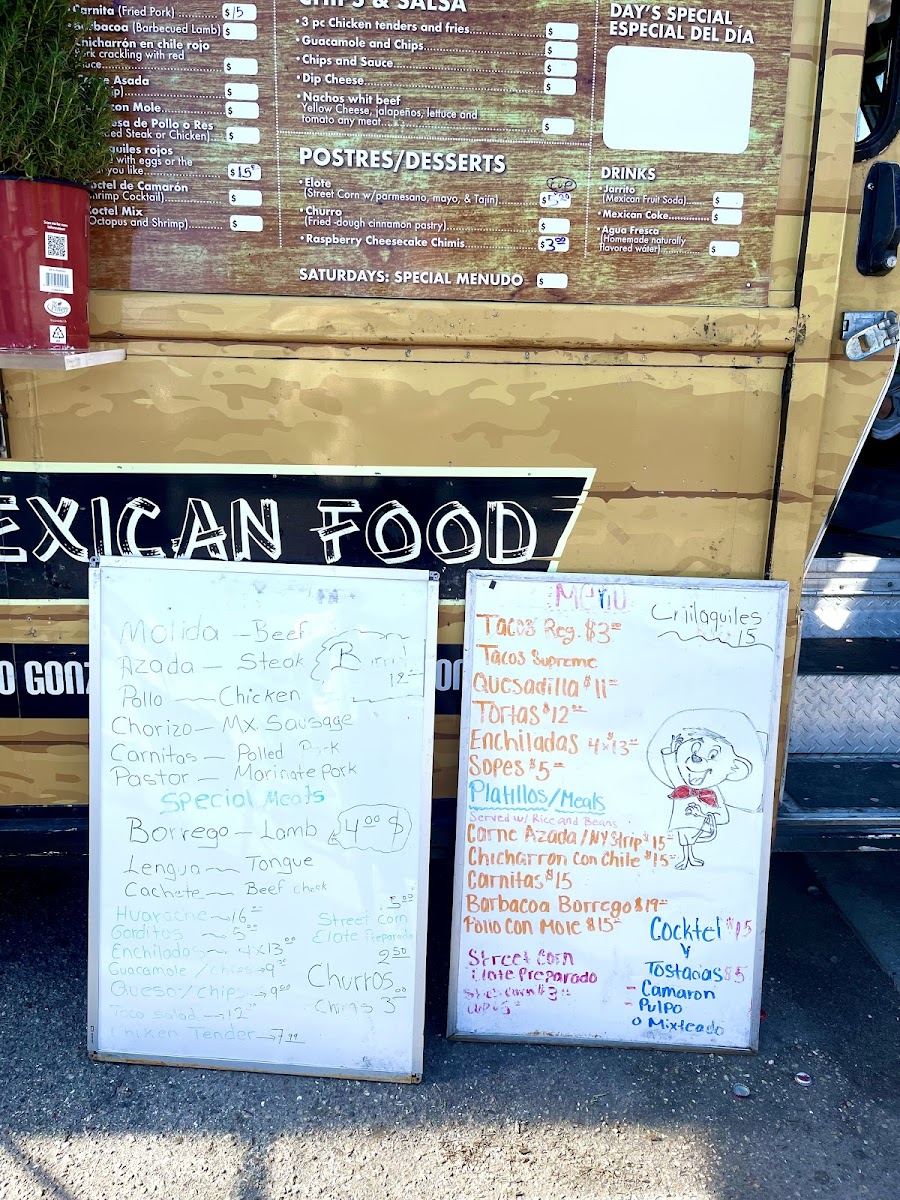 Carnita (Fried Pork) $15
Barbacoa (Barbecued Lamb) $
Chicharrón en chile rojo
Pork crackling with red
sauce $
Carne Asada
$
con Mole $
Steak or Chicken) $
with eggs or the
you like $15
Coctel de Camarón
(Shrimp Cocktail) $
Coctel Mix
(Octopus and Shrimp) $
CHIPS & SALSA
• 3 pc Chicken tenders and fries $
• Guacamole and Chips $
• Chips and Sauce $
• Dip Cheese $
• Nachos whit beef
Yellow Cheese, jalapeños, lettuce and
tomato any meat $
POSTRES/DESSERTS
• Elote
(Street Corn w/parmesano, mayo, & Tajín) $
Cup
• Churro
(Fried -dough cinnamon pastry) $
• Raspberry Cheesecake Chimis $3.00
SATURDAYS: SPECIAL MENUDO $
DAY'S SPECIAL
ESPECIAL DEL DÍA
DRINKS
• Jarrito
(Mexican Fruit Soda) $
• Mexican Coke $
• Agua Fresca
(Homemade naturally
flavored water) $
EXICAN FOOD
O GONZ
Molida - Beef
Azada - Steak
Pollo - Chicken
Chorizo - Mx Sausage
Carnitas - Polled Pork
Pastor - Marinate Pork
Special Meats
Borrego - Lamb 4.00 $
Lengua - Tongue
Cachete - Beef cheek
Huarache 16
Gorditas 5
Enchiladas 4x13
Guacamole / chips 9
Queso / chips 9.00
Taco salad 12
Chiken Tender 7.99
Street Corn
Elote Preparado
2.50
Churros
Menu
Chilaquiles
15
Tacos Reg. $3
Tacos Supreme
Quesadilla $11
Tortas $12
Enchiladas 4x$13
Sopes $5
Platillos/Meals
Served w/ Rice and Beans
Carne Azada / NY Strip $15
Chicharron Con Chile $15
Carnitas $15
Barbacoa Borrego $19
Pollo Con Mole $15
Street Corn
Elote Preparado
$3
cup $5
Cocktel $15
y
Tostadas $5
- Camaron
- Pulpo
o Mixteado